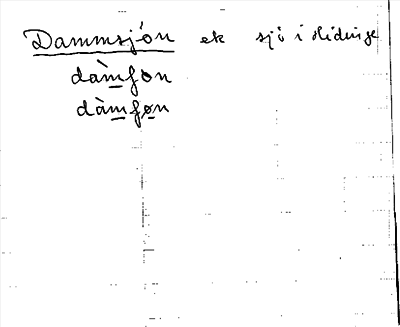 Dammsjön ek sjö i Hidinge
dàmfon
dàmføn